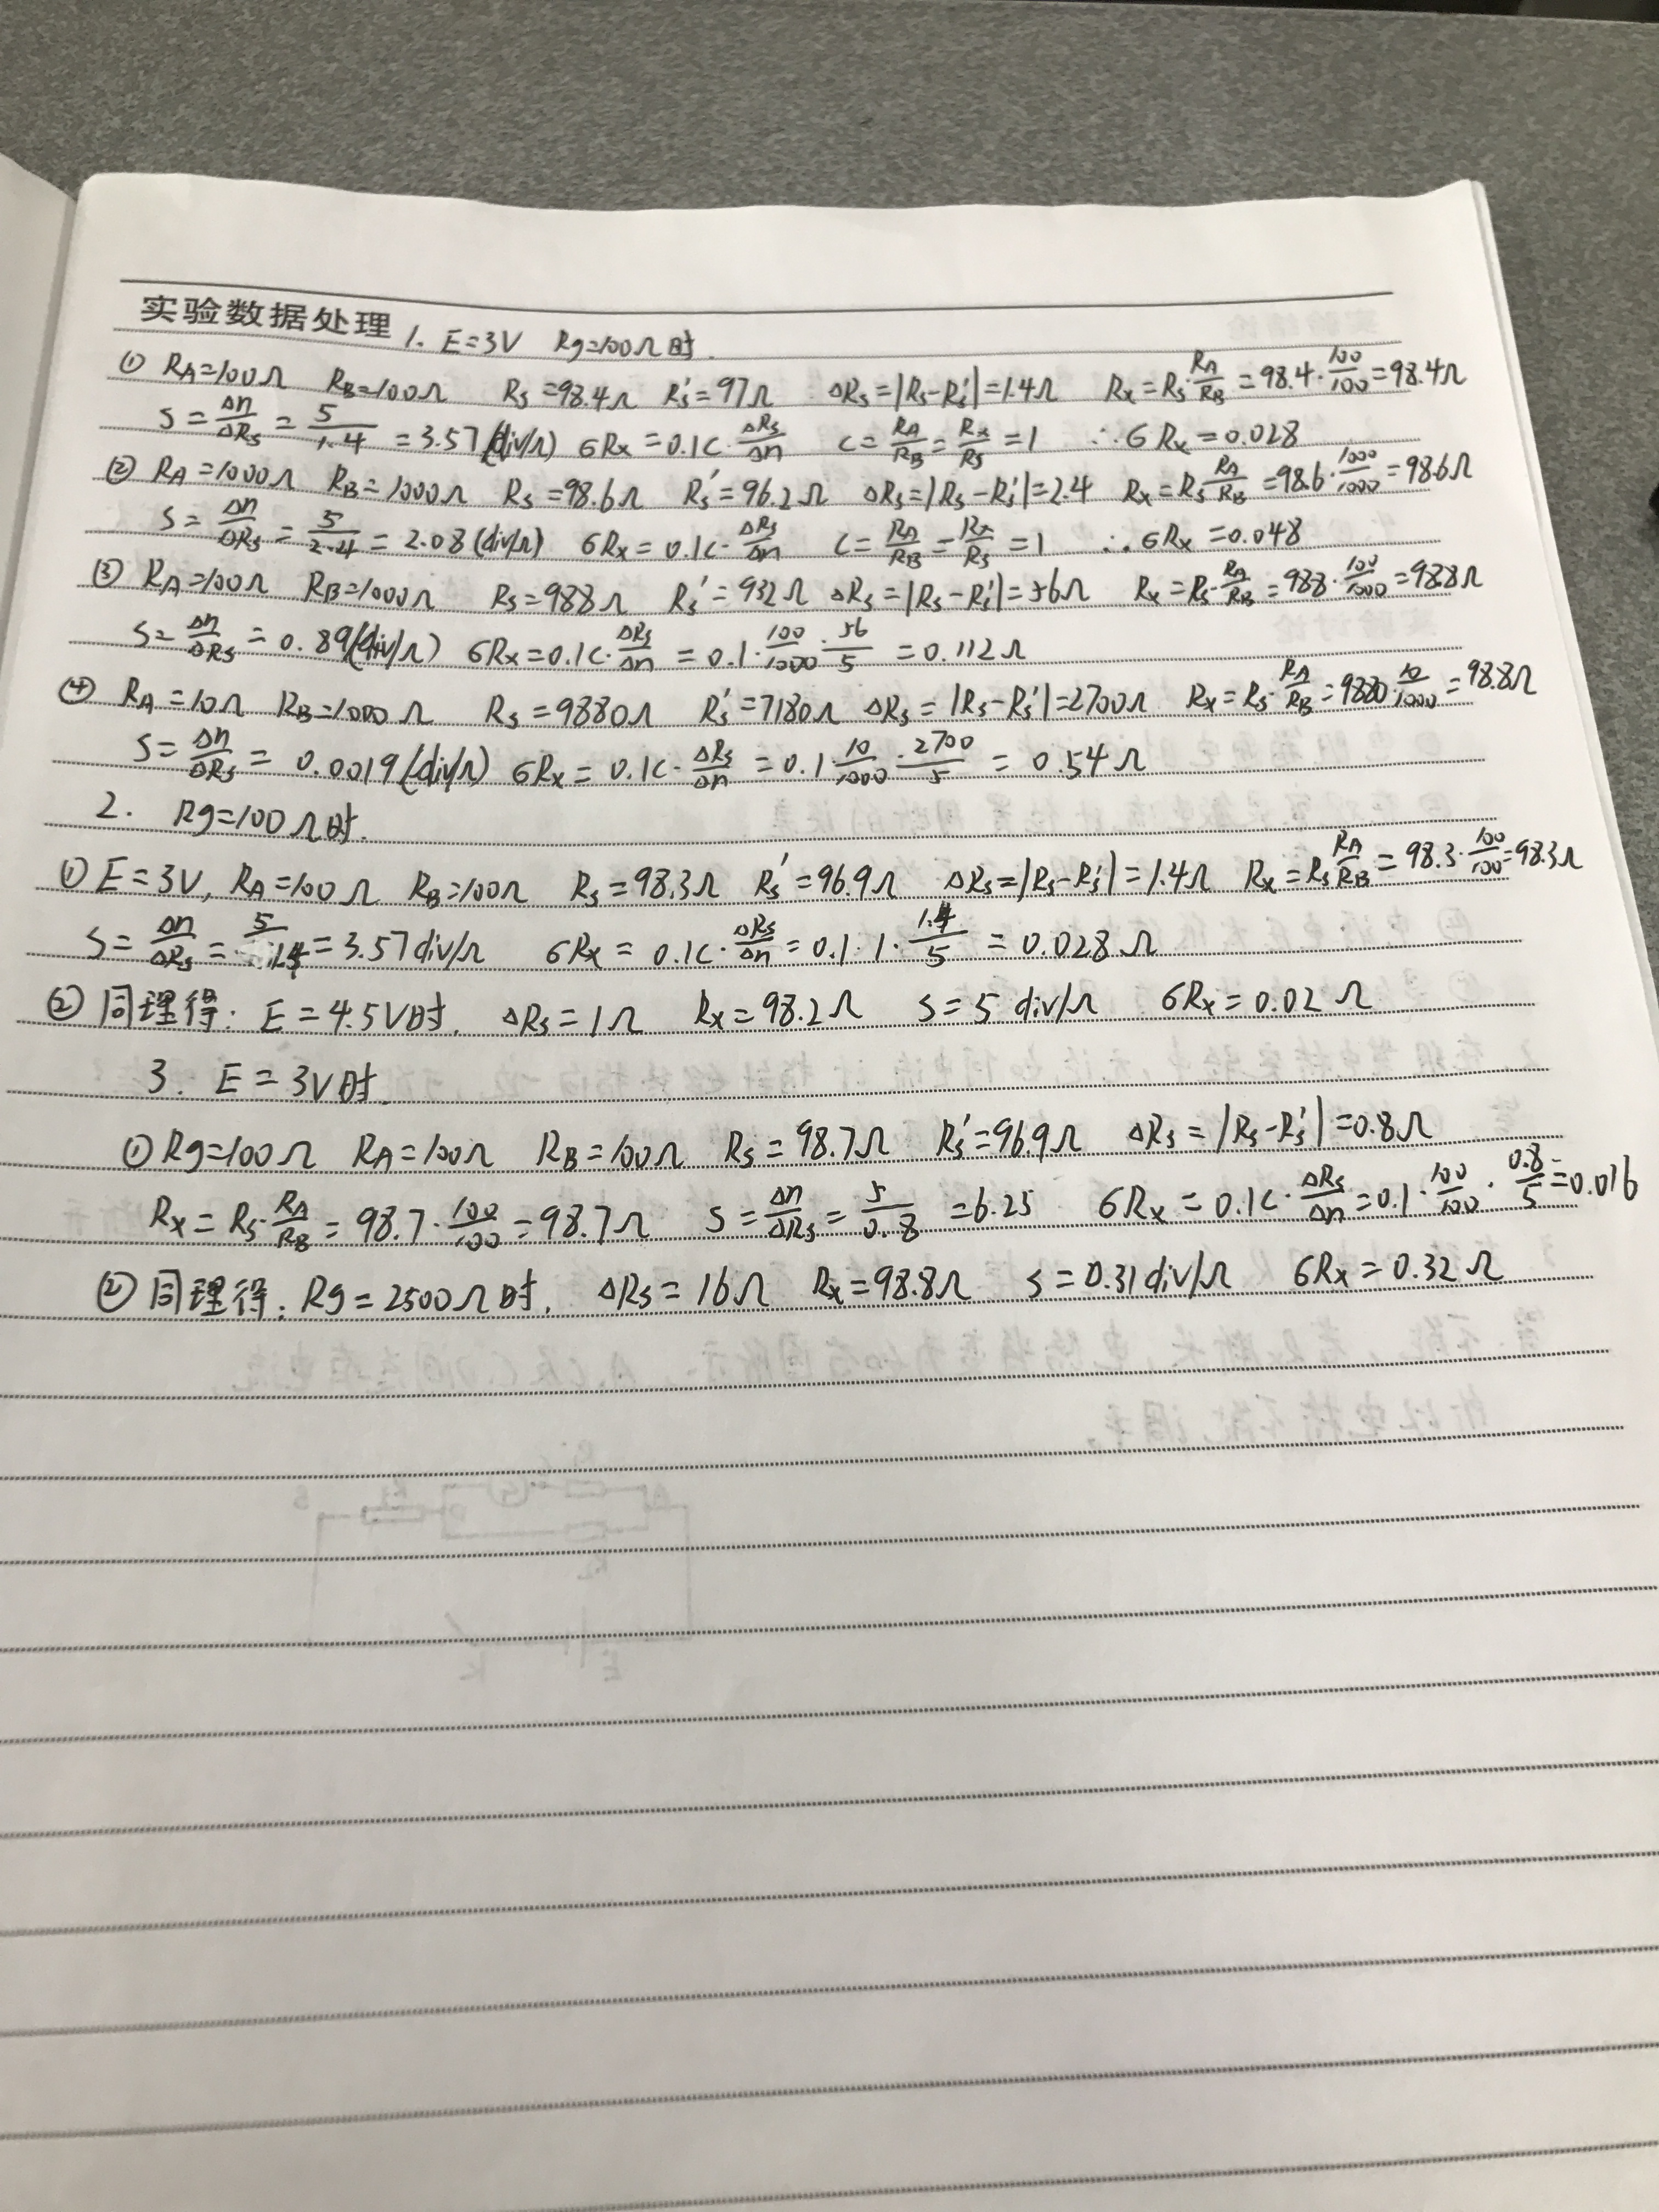 实验数据处理 1. E=3V Rg=100Ω时.
① RA=100Ω RB=100Ω Rs=98.4Ω Rs'=97Ω ΔRs=|Rs-Rs'|=1.4Ω Rx=Rs·RA/RB=98.4·100/100=98.4Ω
S=Δn/ΔRs=5/1.4=3.57(div/Ω) 6Rx=0.1C·ΔRs/Δn C=RA/RB=Rx/Rs=1 ∴6Rx=0.028
② RA=1000Ω RB=1000Ω Rs=98.6Ω Rs'=96.2Ω ΔRs=|Rs-Rs'|=2.4 Rx=Rs·RA/RB=98.6·1000/1000=98.6Ω
S=Δn/ΔRs=5/2.4=2.08(div/Ω) 6Rx=0.1C·ΔRs/Δn C=RA/RB=Rx/Rs=1 ∴6Rx=0.048
③ RA=100Ω RB=1000Ω Rs=988Ω Rs'=932Ω ΔRs=|Rs-Rs'|=56Ω Rx=Rs·RA/RB=988·100/1000=98.8Ω
S=Δn/ΔRs=0.89(div/Ω) 6Rx=0.1C·ΔRs/Δn=0.1·100/1000·56/5=0.112Ω
④ RA=10Ω RB=1000Ω Rs=9880Ω Rs'=7180Ω ΔRs=|Rs-Rs'|=2700Ω Rx=Rs·RA/RB=9880·10/1000=98.8Ω
S=Δn/ΔRs=0.0019(div/Ω) 6Rx=0.1C·ΔRs/Δn=0.1·10/1000·2700/5=0.54Ω
2. Rg=100Ω时.
① E=3V, RA=100Ω RB=100Ω Rs=98.3Ω Rs'=96.9Ω ΔRs=|Rs-Rs'|=1.4Ω Rx=Rs·RA/RB=98.3·100/100=98.3Ω
S=Δn/ΔRs=5/1.4=3.57div/Ω 6Rx=0.1C·ΔRs/Δn=0.1·1·1.4/5=0.028Ω
② 同理得: E=4.5V时. ΔRs=1Ω Rx=98.2Ω S=5 div/Ω 6Rx=0.02Ω
3. E=3V时.
① Rg=100Ω RA=100Ω RB=100Ω Rs=98.7Ω Rs'=96.9Ω ΔRs=|Rs-Rs'|=0.8Ω
Rx=Rs·RA/RB=98.7·100/100=98.7Ω S=Δn/ΔRs=5/0.8=6.25 6Rx=0.1C·ΔRs/Δn=0.1·100/100·0.8/5=0.016
② 同理得: Rg=2500Ω时. ΔRs=16Ω Rx=98.8Ω S=0.31div/Ω 6Rx=0.32Ω